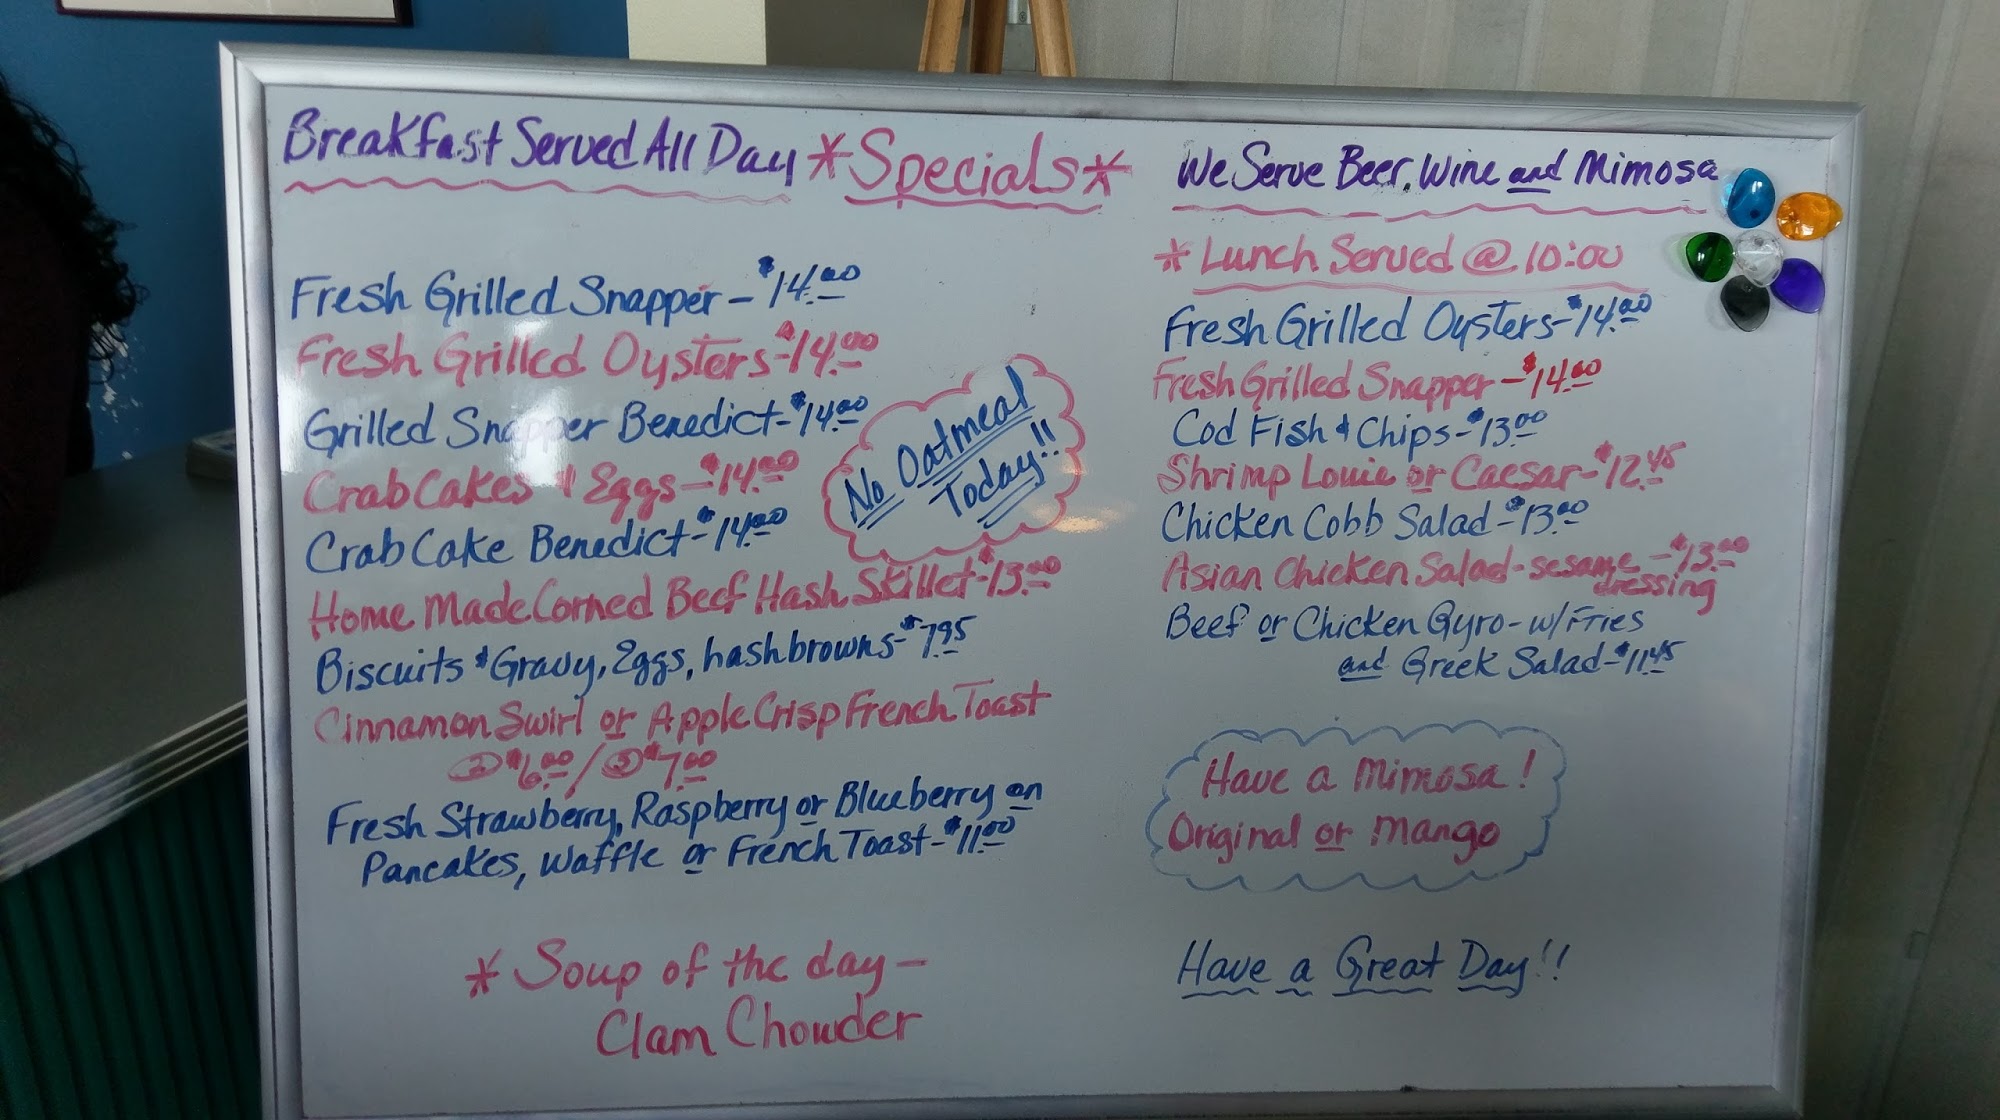 Breakfast Served All Day
*Specials*
Fresh Grilled Snapper - $14.00
Fresh Grilled Oysters - $14.00
Grilled Snapper Benedict - $14.00
Crab Cakes & Eggs - $14.00
Crab Cake Benedict - $14.00
Home Made Corned Beef Hash Skillet - $13.00
Biscuits & Gravy, Eggs, hashbrowns - $7.95
Cinnamon Swirl or Apple Crisp French Toast
② $6.00 / ③ $7.00
Fresh Strawberry, Raspberry or Blueberry on
Pancakes, Waffle or French Toast - $11.00
No Oatmeal
Today!!
* Soup of the day -
Clam Chowder
We Serve Beer, Wine and Mimosa
* Lunch Served @ 10:00
Fresh Grilled Oysters - $14.00
Fresh Grilled Snapper - $14.00
Cod Fish & Chips - $13.00
Shrimp Louie or Caesar - $12.45
Chicken Cobb Salad - $13.00
Asian Chicken Salad - sesame - $13.00
dressing
Beef or Chicken Gyro - w/Fries
and Greek Salad - $11.45
Have a Mimosa!
Original or Mango
Have a Great Day!!